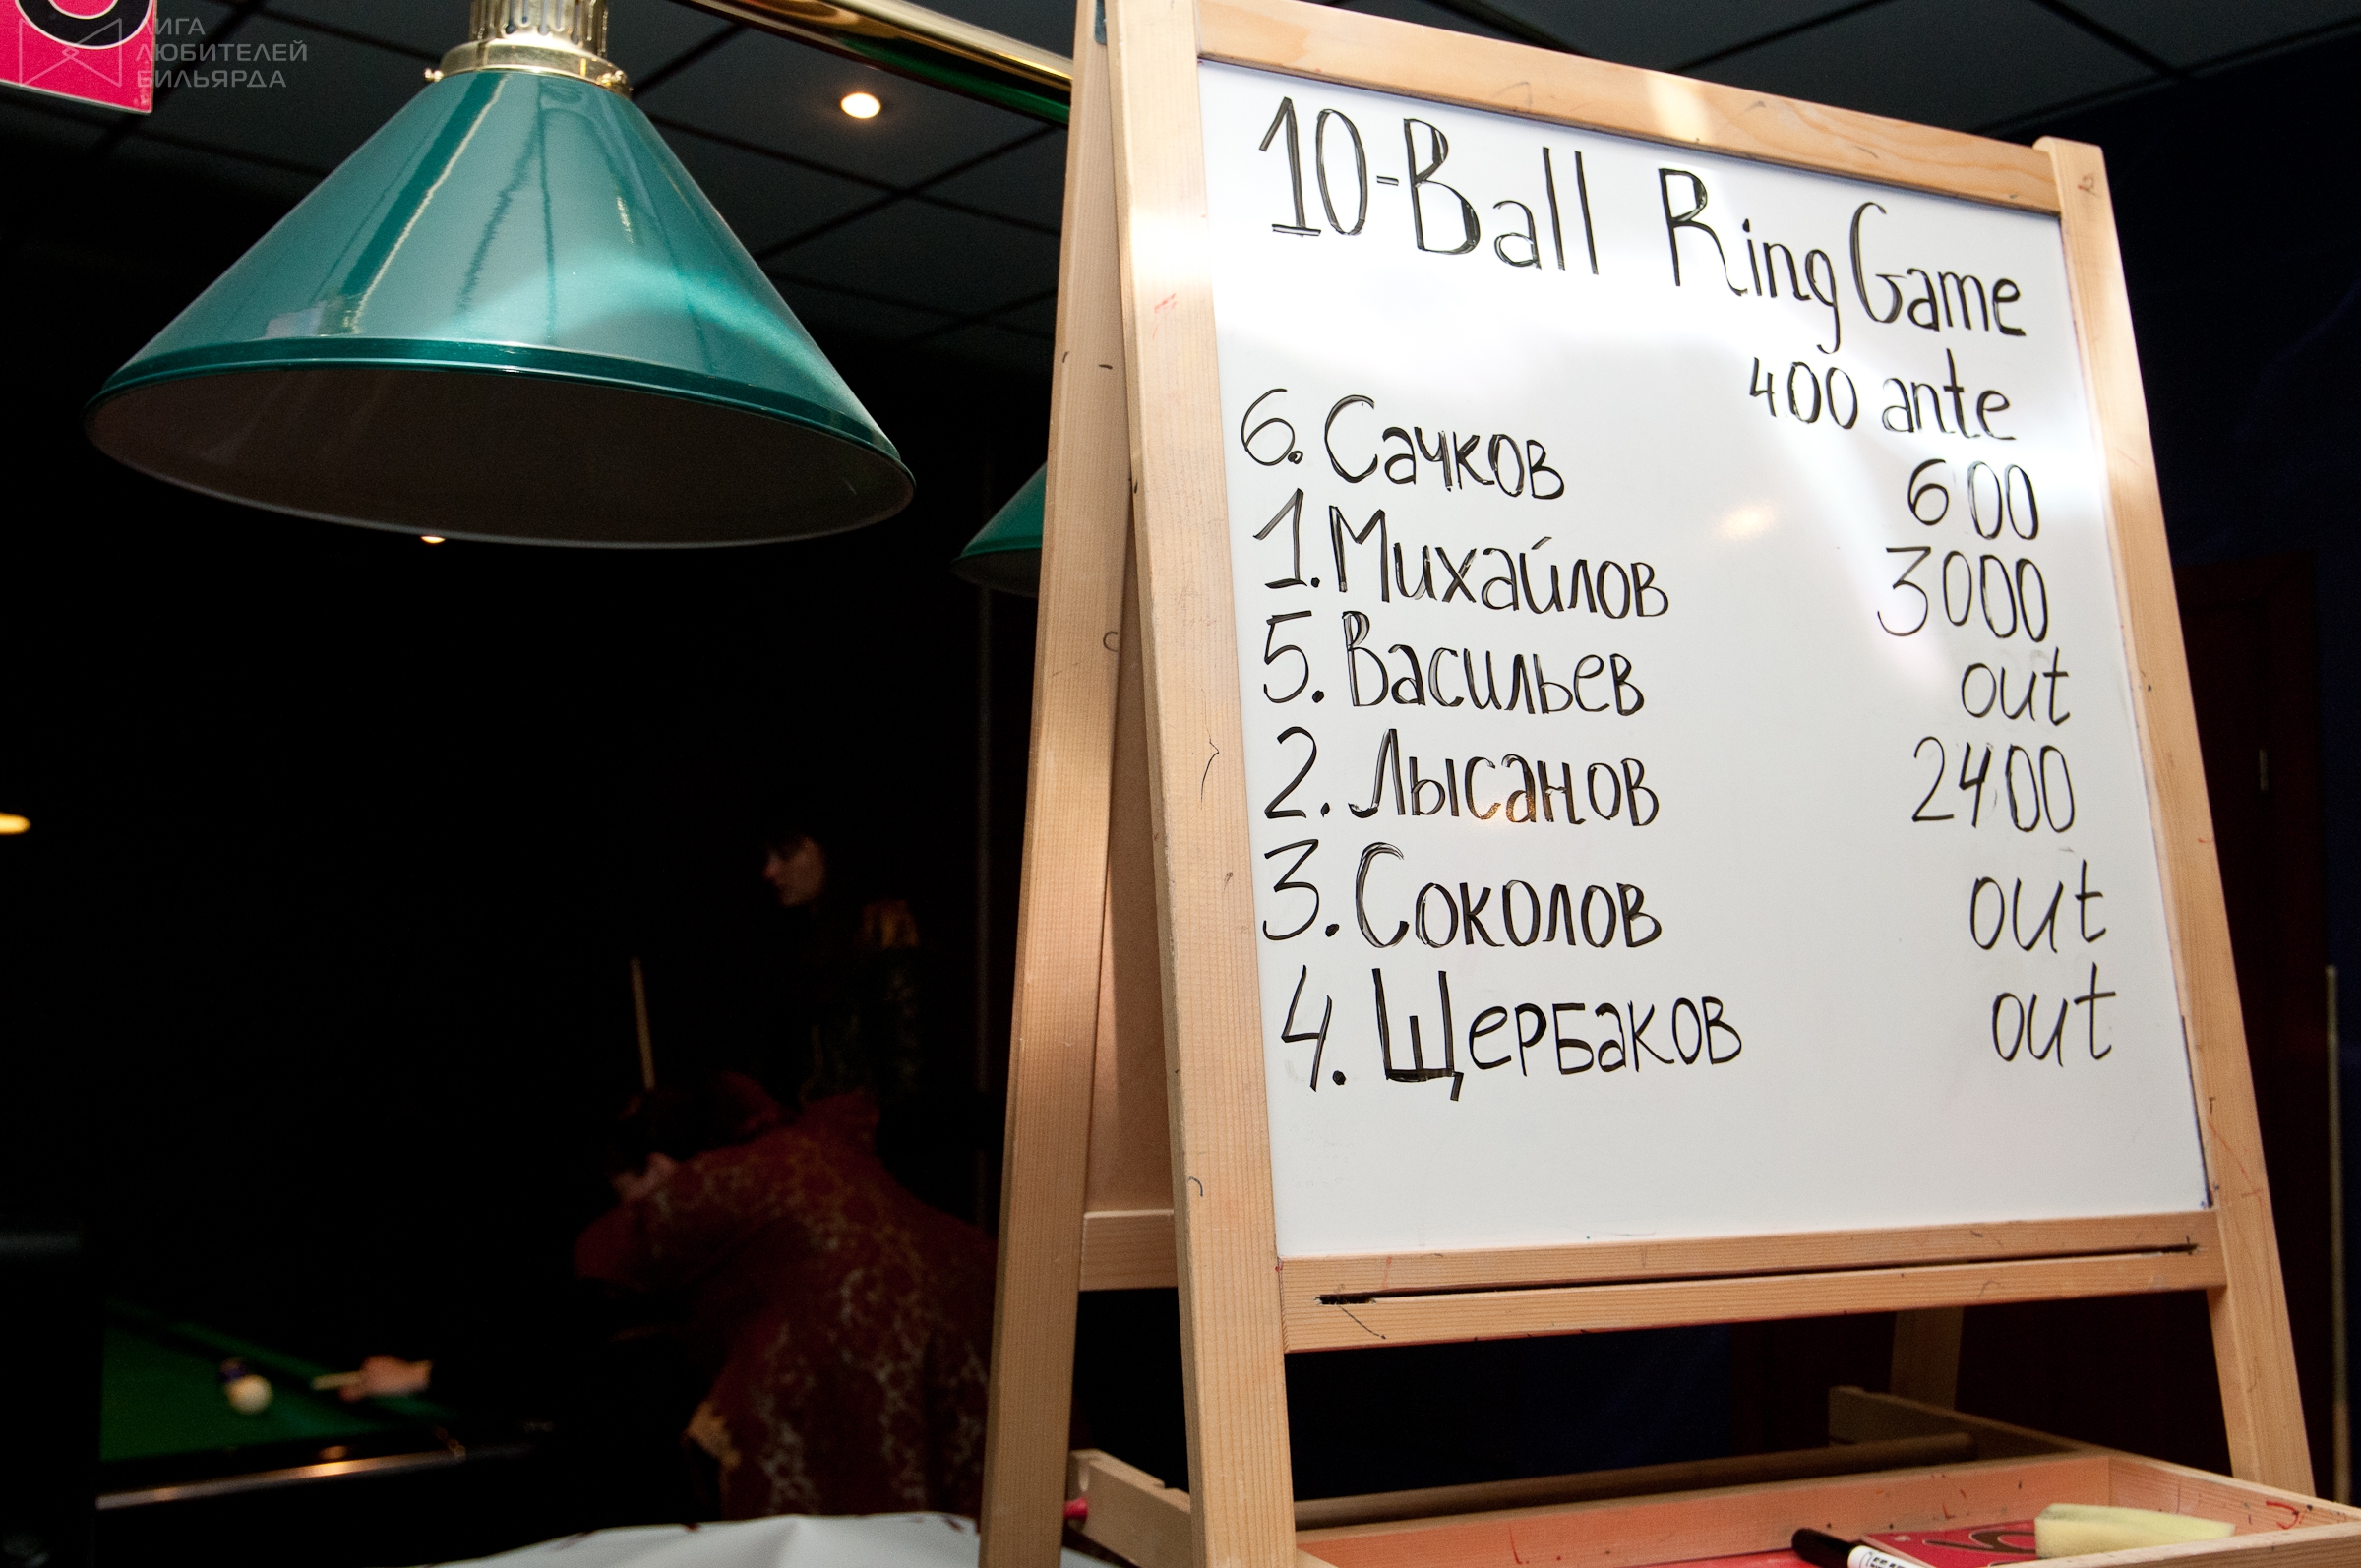 ЛИГА
ЛЮБИТЕЛЕЙ
БИЛЬЯРДА
10-Ball Ring Game
400 ante
6. Сачков 600
1. Михайлов 3000
5. Васильев out
2. Лысанов 2400
3. Соколов out
4. Щербаков out